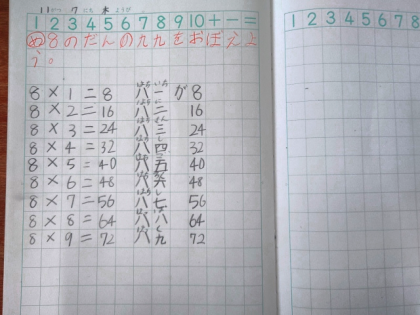 11がつ 7にち 木ようび
1 2 3 4 5 6 7 8 9 10 + − =
1 2 3 4 5 6 7 8
め 8のだんの九九をおぼえよ
う。
8×1=8 八一が8
8×2=16 八二 16
8×3=24 八三 24
8×4=32 八四 32
8×5=40 八五 40
8×6=48 八六 48
8×7=56 八七 56
8×8=64 八八 64
8×9=72 八九 72